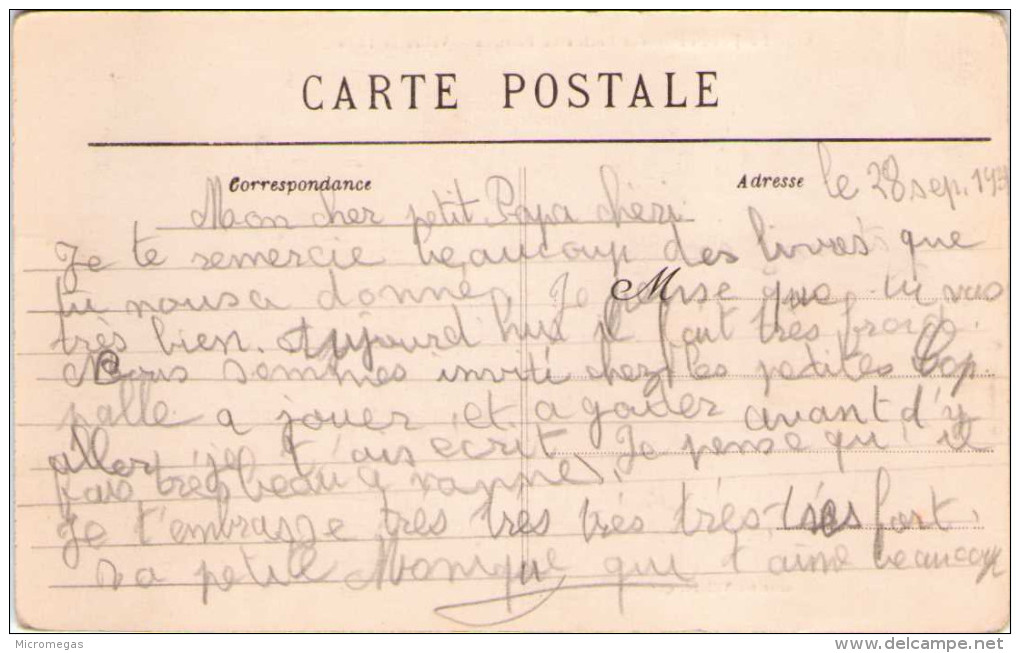 CARTE POSTALE
Correspondance
Adresse
le 28 sep. 193
Mon cher petit Papa chéri
Je te remercie beaucoup des livres que
tu nous a donné, Je pense que tu vas
très bien. Aujourd'hui il fait très froid.
Nous sommes invité chez les petites Cop
palle a jouer et a goûter avant d'y
aller je t'ais écrit. Je pense qu'il
fais très beau a vannes.
Je t'embrasse très très très très très fort.
ta petite Monique qui t'aime beaucoup
Micromegas
www.delcampe.net